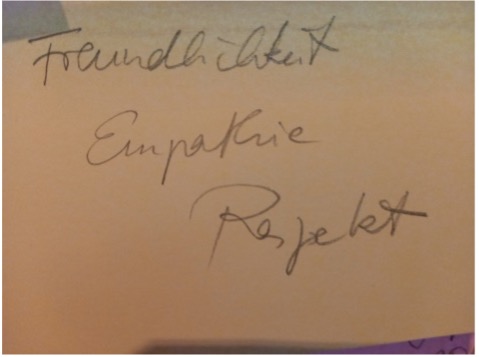 Freundlichkeit
Empathie
Respekt